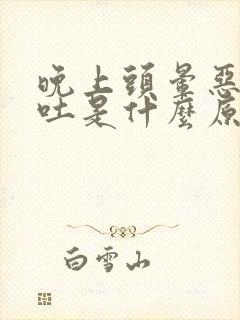 晚上頭暈惡
吐是什麼原
白雪山